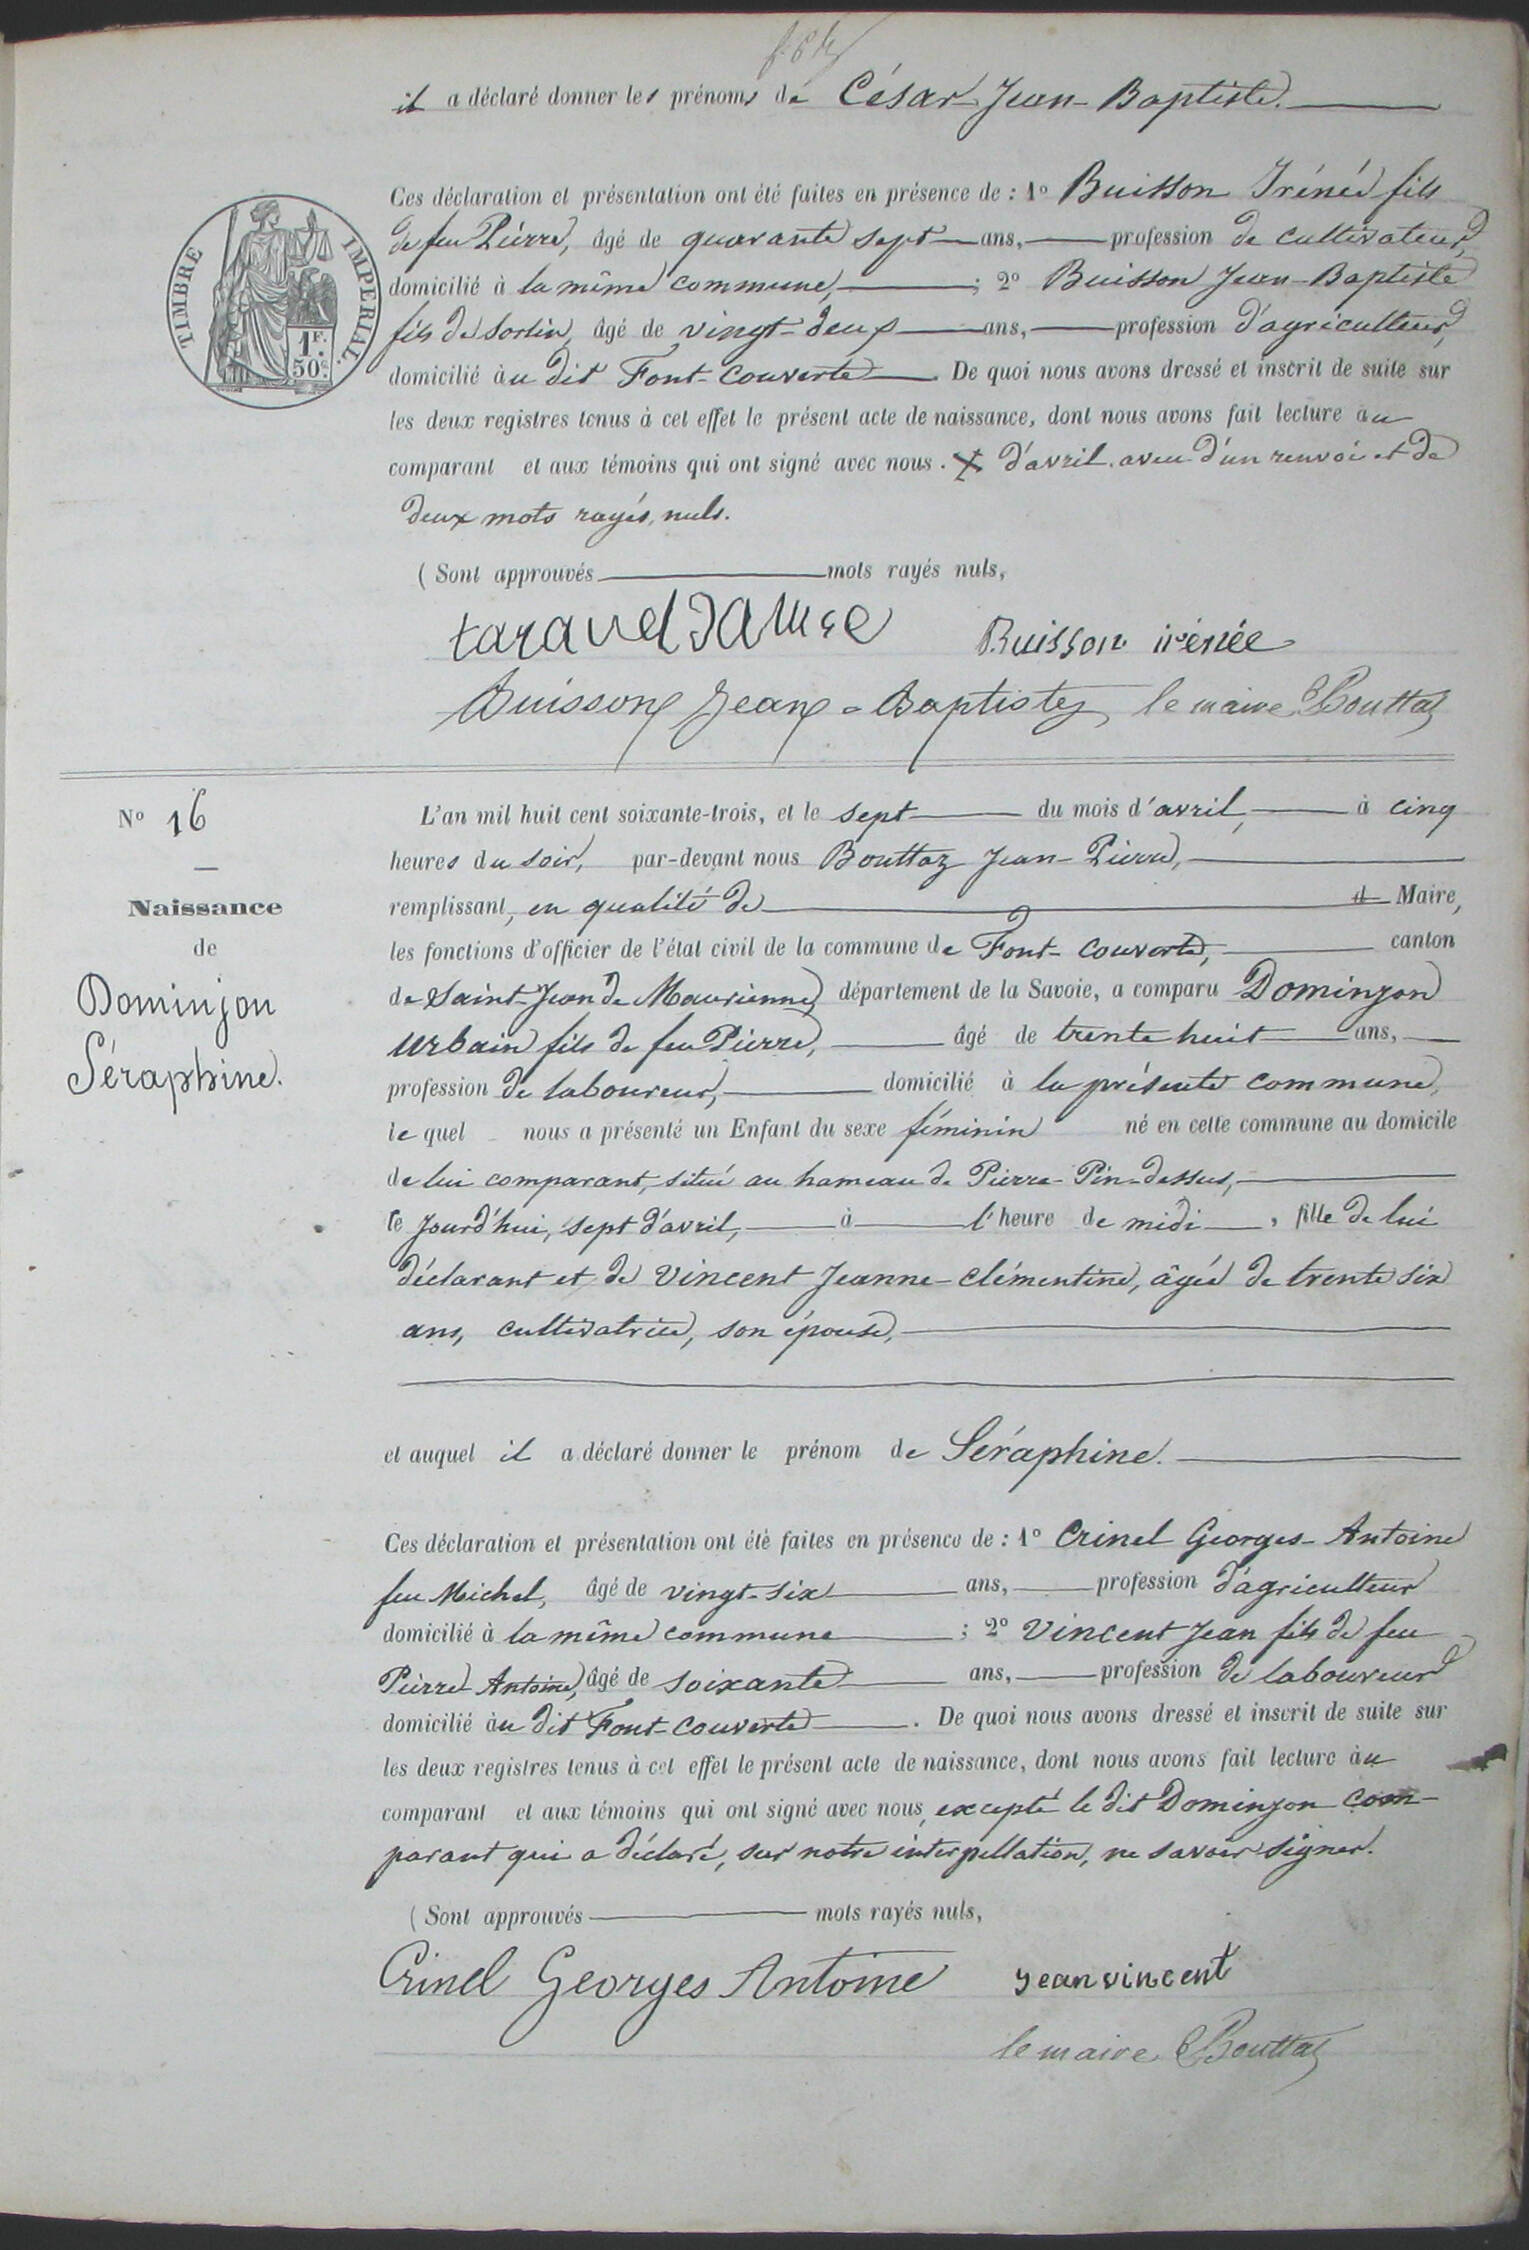 il a déclaré donner les prénoms de César Jean-Baptiste.
Ces déclaration et présentation ont été faites en présence de : 1º Buisson Irénée fils
de feu Pierre, âgé de quarante sept ans, profession de cultivateur,
domicilié à la même commune, ; 2º Buisson Jean-Baptiste
fils de Sorlin, âgé de vingt-deux ans, profession d'agriculteur,
domicilié àu dit Font-couverte. De quoi nous avons dressé et inscrit de suite sur
les deux registres tenus à cet effet le présent acte de naissance, dont nous avons fait lecture au
comparant et aux témoins qui ont signé avec nous. X d'avril. aveu d'un renvoi et de
deux mots rayés, nuls.
(Sont approuvés mots rayés nuls,
TIMBRE IMPERIAL.
1F.
50c.
taravel Buisson irénée
Buisson Jean=Baptiste le maire Bouttaz
Nº 16
Naissance
de
Dominjon
Séraphine.
L'an mil huit cent soixante-trois, et le sept du mois d'avril, à cinq
heures du soir, par-devant nous Bouttaz Jean-Pierre,
remplissant, en qualité de d Maire,
les fonctions d'officier de l'état civil de la commune de Font-couverte, canton
de Saint-Jean de Maurienne, département de la Savoie, a comparu Dominjon
Urbain fils de feu Pierre, âgé de trente huit ans,
profession de laboureur, domicilié à la présente commune,
le quel nous a présenté un Enfant du sexe féminin né en cette commune au domicile
de lui comparant, situé au hameau de Pierre-Pin-dessus,
le jourd'hui, sept d'avril, à l'heure de midi, fille de lui
déclarant et de Vincent Jeanne-Clémentine, âgée de trente six
ans, cultivatrice, son épouse,
et auquel il a déclaré donner le prénom de Séraphine.
Ces déclaration et présentation ont été faites en présence de : 1º Crinel Georges-Antoine
feu Michel, âgé de vingt-six ans, profession d'agriculteur
domicilié à la même commune ; 2º Vincent Jean fils de feu
Pierre-Antoine, âgé de soixante ans, profession de laboureur
domicilié àu dit Font-couverte. De quoi nous avons dressé et inscrit de suite sur
les deux registres tenus à cet effet le présent acte de naissance, dont nous avons fait lecture àu
comparant et aux témoins qui ont signé avec nous, excepté le dit Dominjon com-
parant qui a déclaré, sur notre interpellation, ne savoir signer.
(Sont approuvés mots rayés nuls,
Crinel Georges Antoine jean vincent
le maire Bouttaz